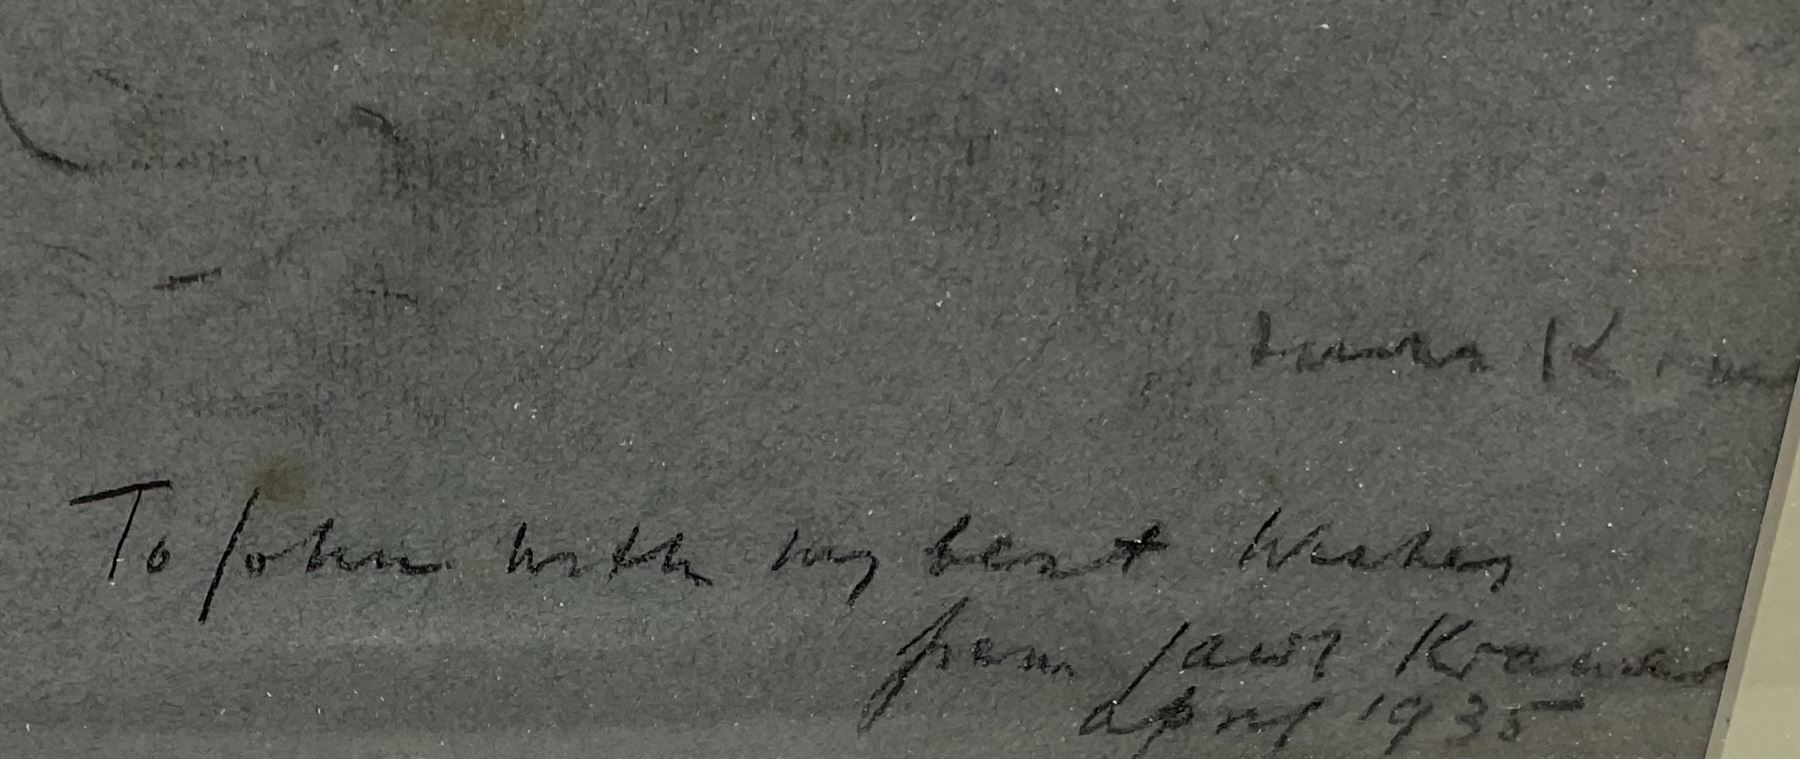 Kram
To John with my best wishes
from Jacob Kramer
April 1935